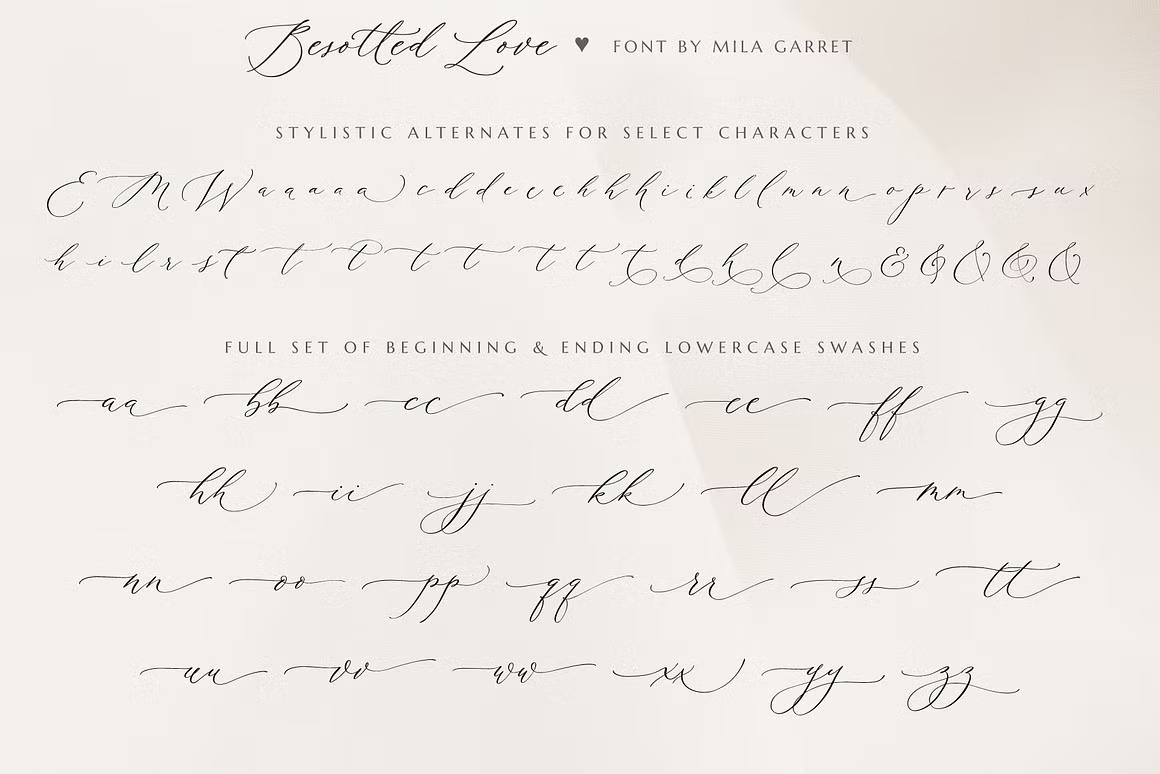 Besotted Love ♥ FONT BY MILA GARRET
STYLISTIC ALTERNATES FOR SELECT CHARACTERS
E M W a a a a a c d d e c e h h h i i k l l m n n o p r r s s u x
h i l r s t t t t t t t t d h l n & & & & &
FULL SET OF BEGINNING & ENDING LOWERCASE SWASHES
aa bb cc dd ee ff gg
hh ii jj kk ll mm
nn oo pp qq rr ss tt
uu vv ww xx yy zz